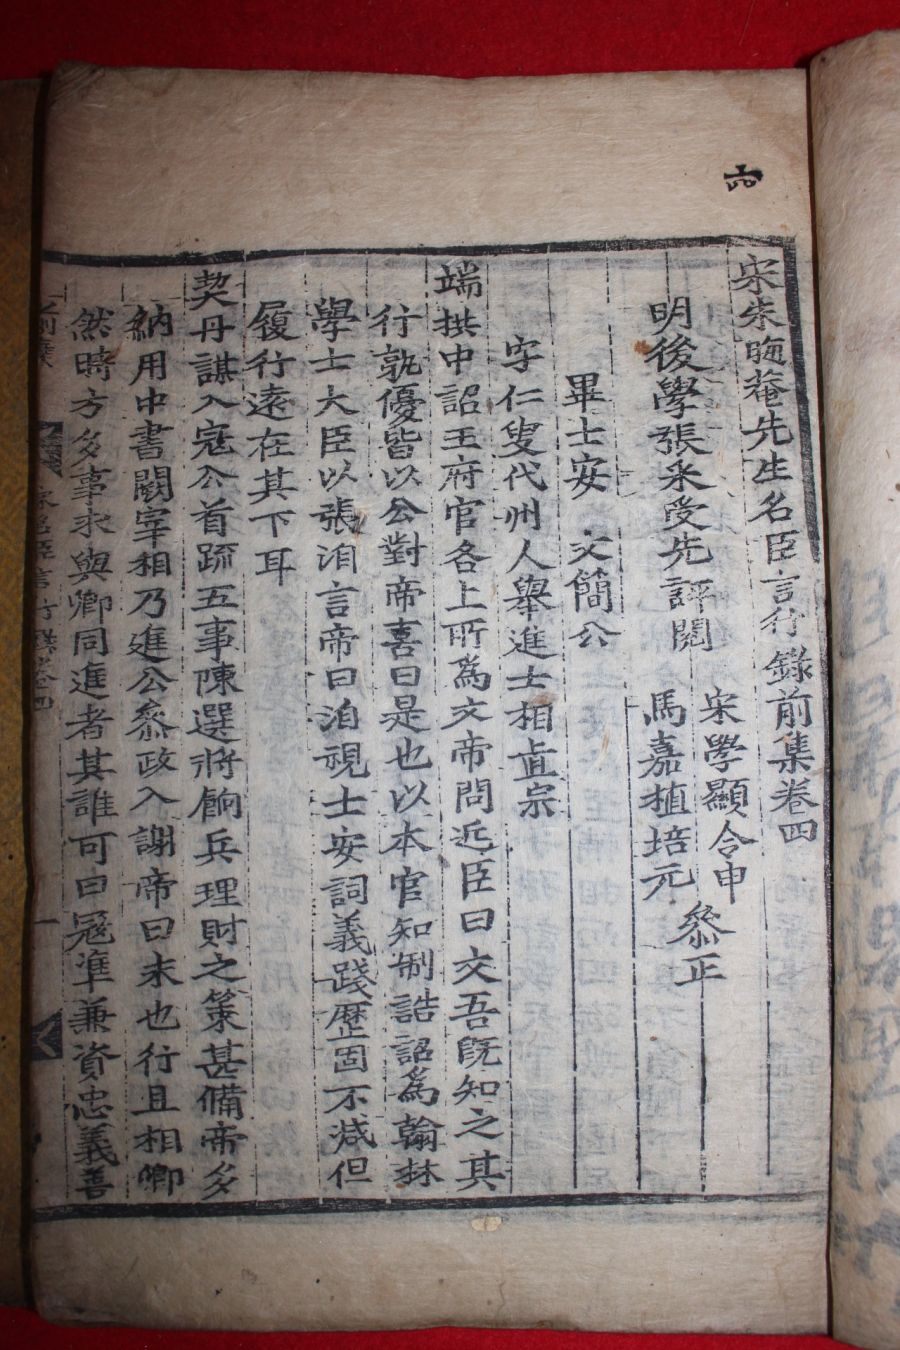 宋朱晦菴先生名臣言行錄前集卷四
明後學張采受先評閱
宋學顯令申
馬嘉植培元
叅正
畢士安 文簡公
字仁叟代州人舉進士相眞宗
端拱中詔王府官各上所爲文帝問近臣曰文吾旣知之其
行孰優皆以公對帝喜曰是也以本官知制誥詔爲翰林
學士大臣以張洎言帝曰洎視士安詞義踐歷固不减但
履行遠在其下耳
契丹謀入寇公首疏五事陳選將餉兵理財之策甚備帝多
納用中書闕宰相乃進公叅政入謝帝曰未也行且相卿
然時方多事求與卿同進者其誰可曰寇準兼資忠義善